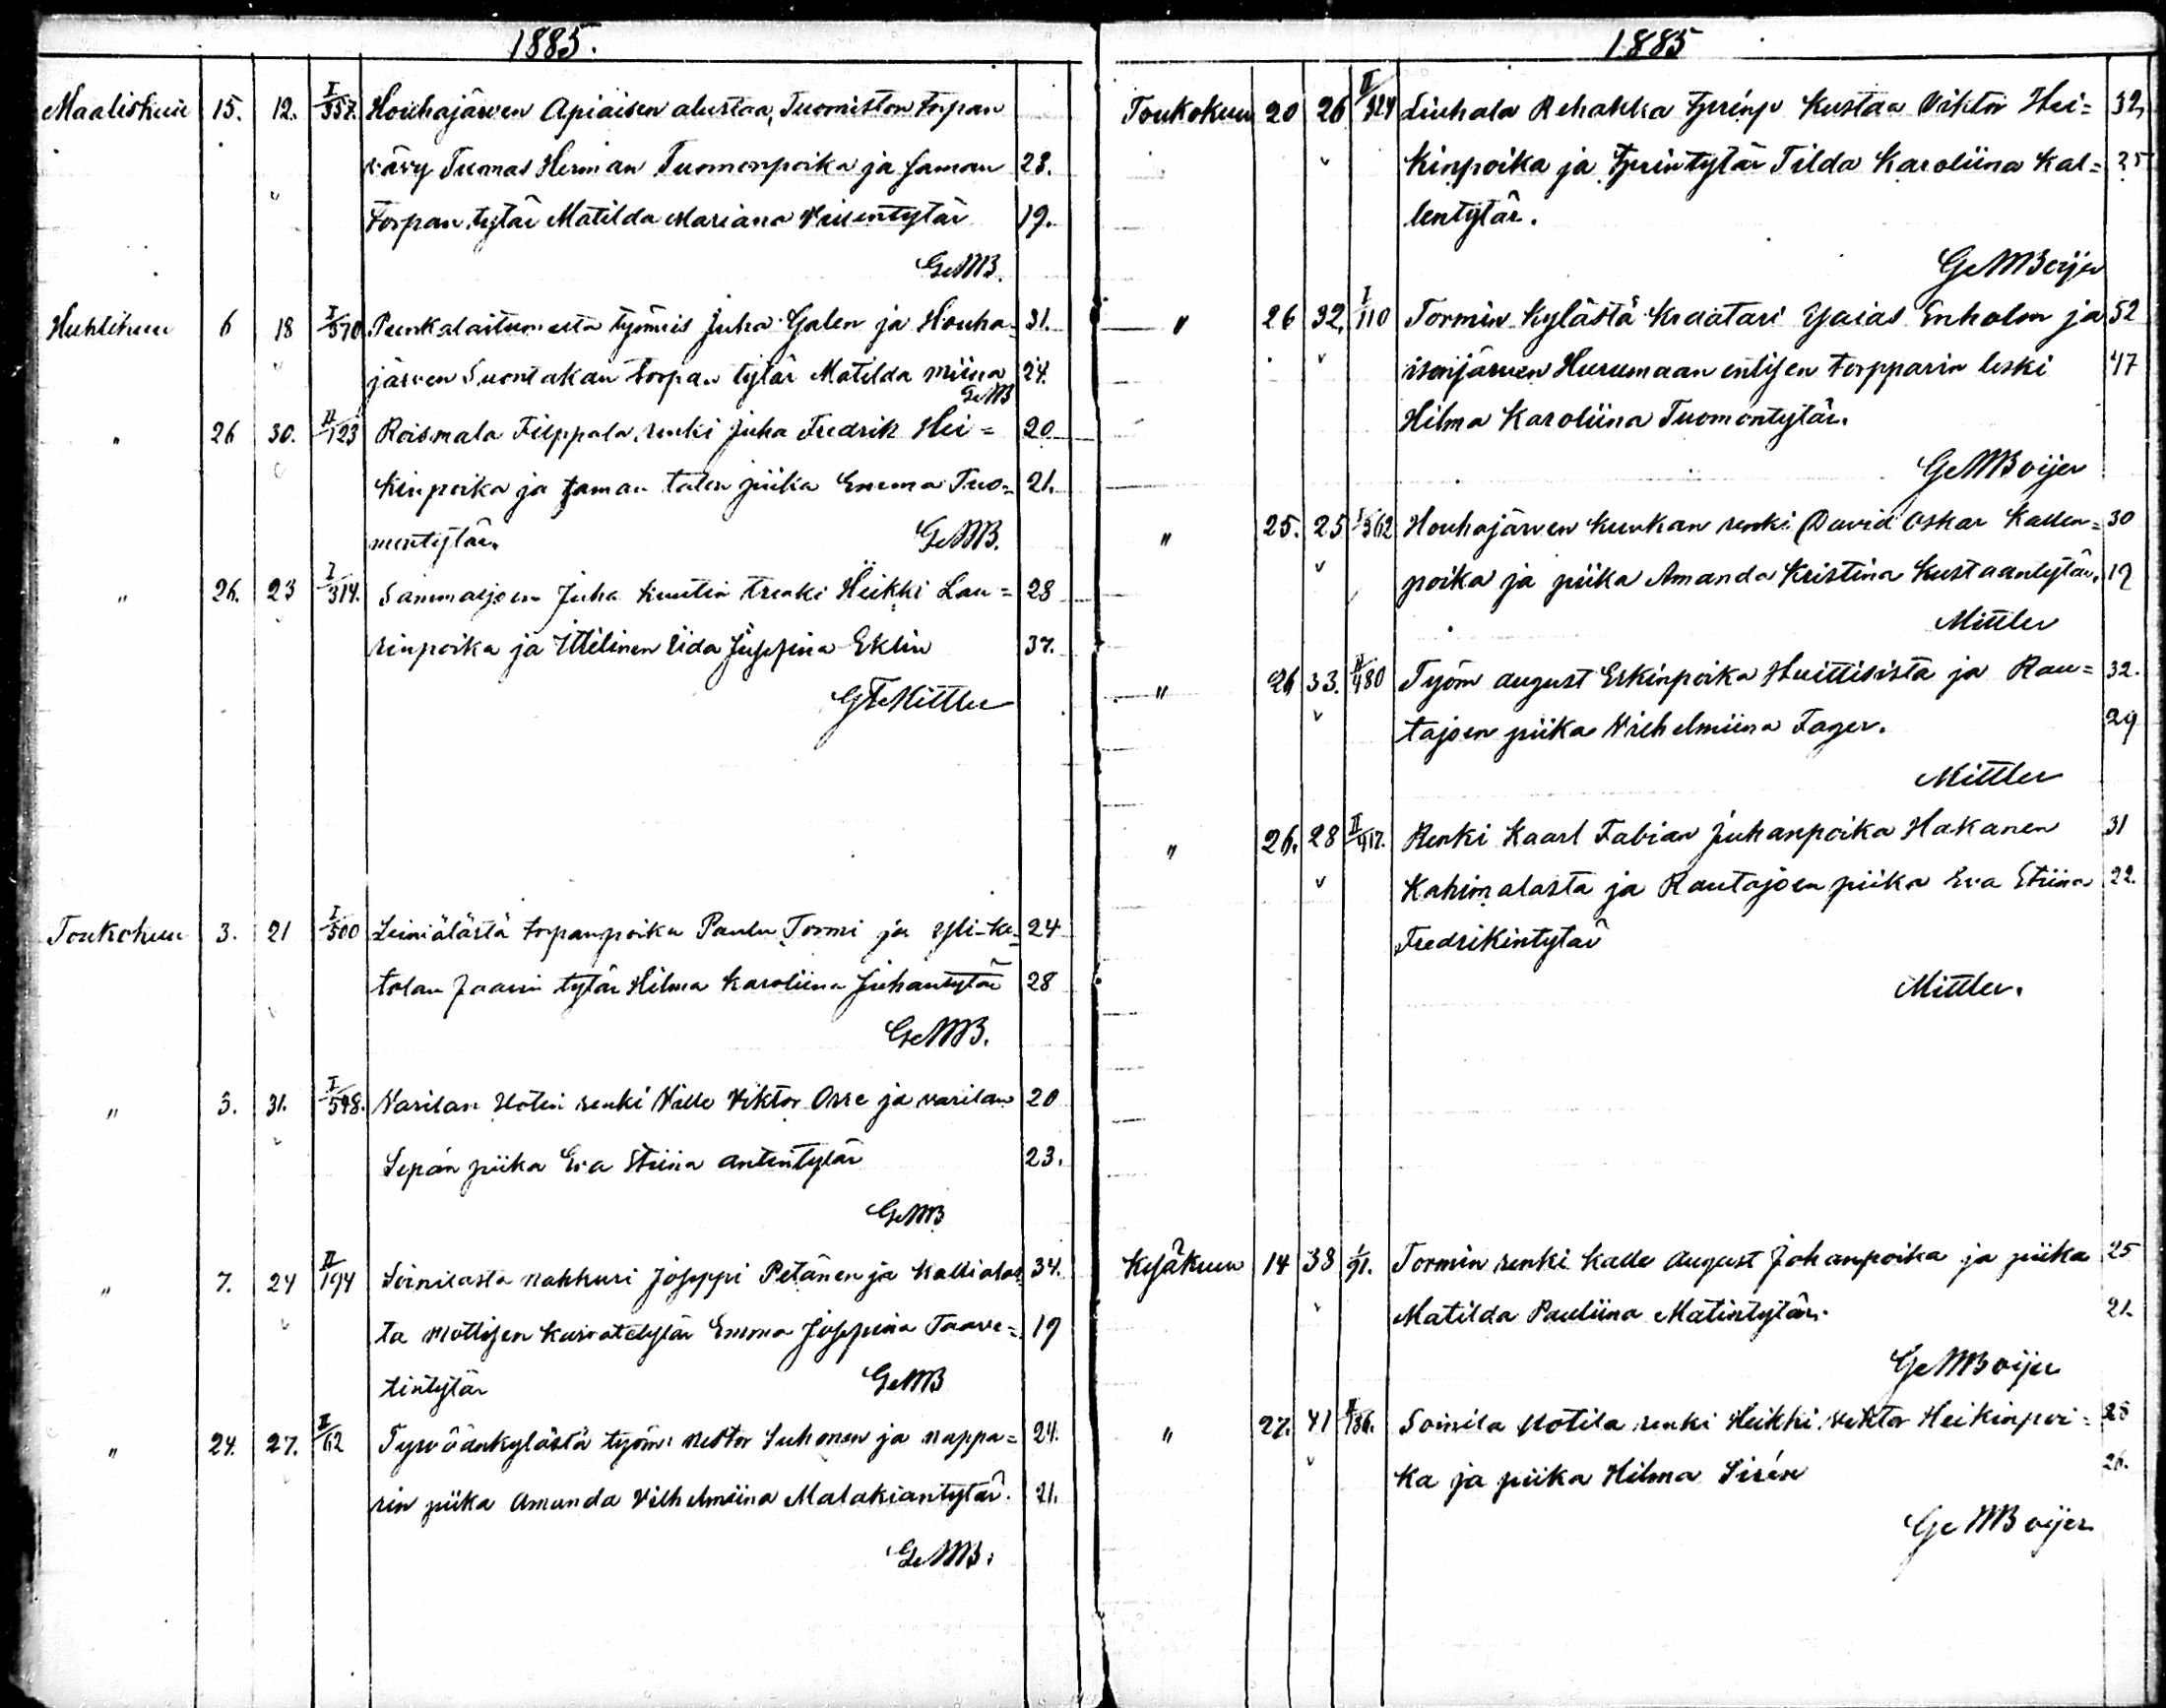 1885.
Maaliskuu 15. 12. I/357. Houhajärven Apiaisen alustaa, Tuomiston torpan
vävy Tuomas Herman Tuomonpoika ja saman 23.
Torpan tytär Matilda Mariana Villentytär 19.
GeMB.
Huhtikuu 6 18 I/570 Punkalaitumesta työmies Juha Galen ja Houha- 31.
järven Suontakan torpan tytär Matilda Miina 24.
GeMB
" 26 30. II/123 Roismala Filppala, renki Juha Fredrik Hei= 20
kinpoika ja saman talon piika Emma Tuo= 21.
mentytär. GeMB.
" 26. 23 I/314. Sammaljoen Juha Kuutin trenki Heikki Lau= 28
rinpoika ja Ittellinen Iida Jusefina Eklin 37.
GFMittler
Toukokuu 3. 21 I/500 Leiniälästä torpanpoika Paulu Tormi ja Yli-Ke= 24
tolan Jaarin tytär Hilma Karoliina Juhantytär 28
GeMB.
" 3. 31. I/548. Varilan Uotin renki Ville Viktor Orre ja varilan 20
Sepän piika Eva Stiina Antintytär 23.
GeMB
" 7. 24 II/194 Soinilasta nahkuri Joseppi Petänen ja Kallialas 34.
ta Mottisen kasvatetytär Emma Josepina Taave= 19
tintytär GeMB
" 24. 27. II/62 Tyrväänkylästä työm: Nestor Suhonen ja nappa= 24.
rin piika Amanda Vilhelmiina Malakiantytär. 21.
GeMB.
1885
Toukokuu 20 26 II/324 Liuhala Rehakka Kustaa Viktor Hei= 32,
kinpoika ja Tilda Karoliina Kal= 25
lentytär.
GeMBoijer
" 26 32, I/110 Tormin kylästä Kraatari Esaias Enholm ja 52
Hurumaan entisen torpparin leski 47
Hilma Karoliina Tuomontytär.
GeMBoijer
" 25. 25 I/362 Houhajärven Kunkan renki David Oskar Kallen= 30
poika ja piika Amanda Kristina Kustaantytär. 19
Mittler
" 26 33. II/480 Työm August Erkinpoika Huittisista ja Rau= 32.
tajoen piika Vilhelmiina Fager. 29
Mittler
" 26. 28 II/417. Renki Kaarl Fabian Juhanpoika Hakanen 31
Kahimalasta ja Rautajoen piika Eva Stiina 22.
Fredrikintytär
Mittler.
Kesäkuu 14 38 I/91. Tormin renki Kalle August Johanpoika ja piika 25
Matilda Pauliina Matintytär. 21.
GeMBoijer
" 27. 41 II/186. Soinila Uotila renki Heikki Viktor Heikinpoi= 28
ka ja piika Hilma Sirén 26.
GeMBoijer